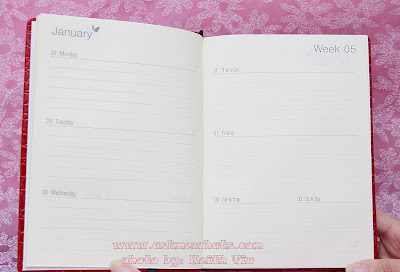 January
28 Monday
29 Tuesday
30 Wednesday
Week 05
31 Thursday
01 Friday
02 Saturday 03 Sunday
www.askmewhats.com
photo by: Keith Tiu